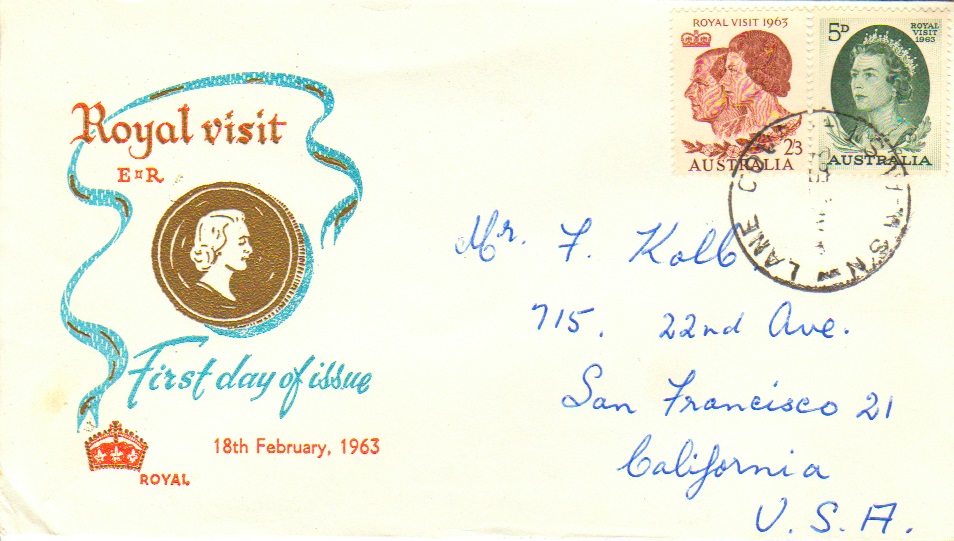 Royal visit
E II R
First day of issue
18th February, 1963
ROYAL
ROYAL VISIT 1963
2/3
AUSTRALIA
5D
ROYAL
VISIT
1963
AUSTRALIA
LANE COVE N.S.W
Mr. F. Kolb
715. 22nd Ave.
San Francisco 21
California
U. S. A.